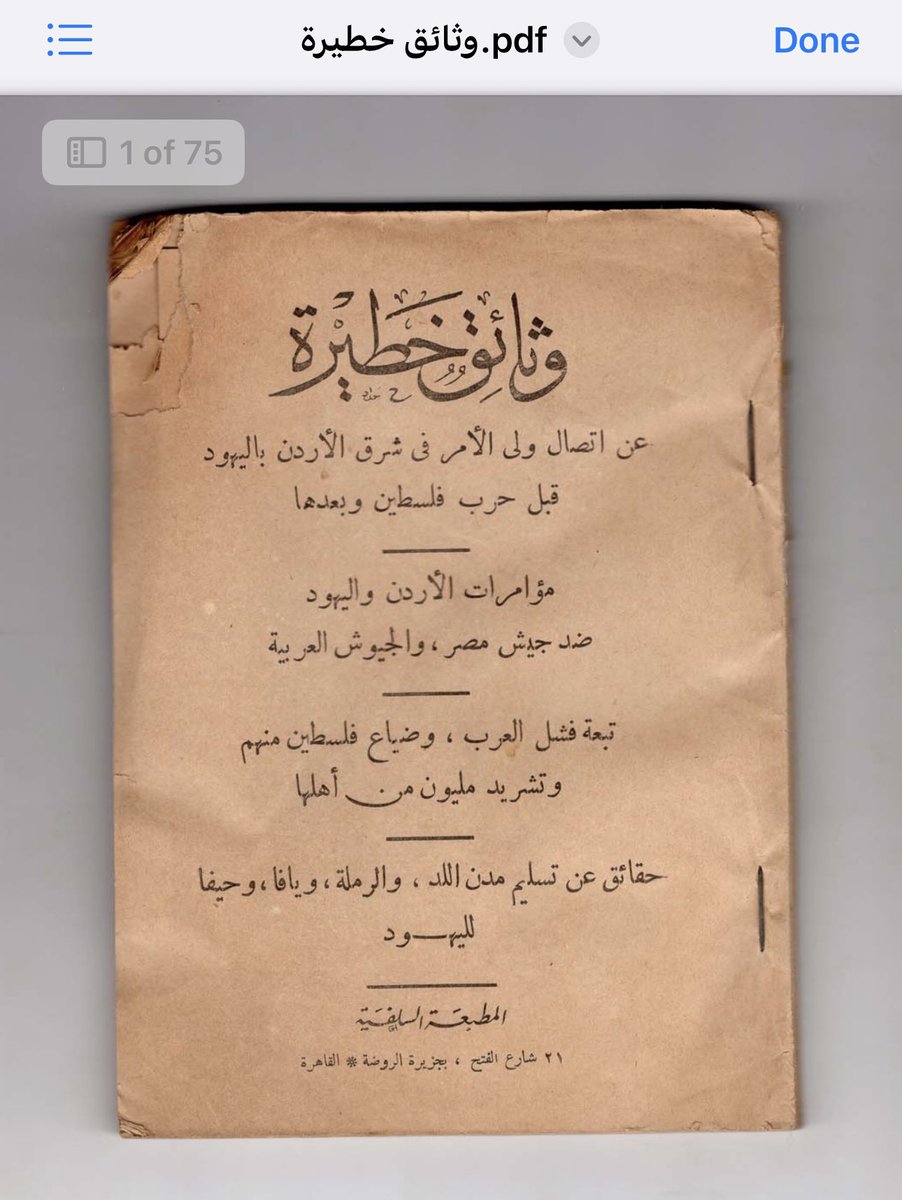 وثائق خطيرة.pdf
Done
1 of 75
وثائق خطيرة
عن اتصال ولى الأمر فى شرق الأردن باليهود
قبل حرب فلسطين وبعدها
مؤامرات الأردن واليهود
ضد جيش مصر، والجيوش العربية
تبعة فشل العرب، وضياع فلسطين منهم
وتشريد مليون من أهلها
حقائق عن تسليم مدن اللد، والرملة، ويافا، وحيفا
لليهود
المطبعة السلفية
٢١ شارع الفتح، بجزيرة الروضة * القاهرة